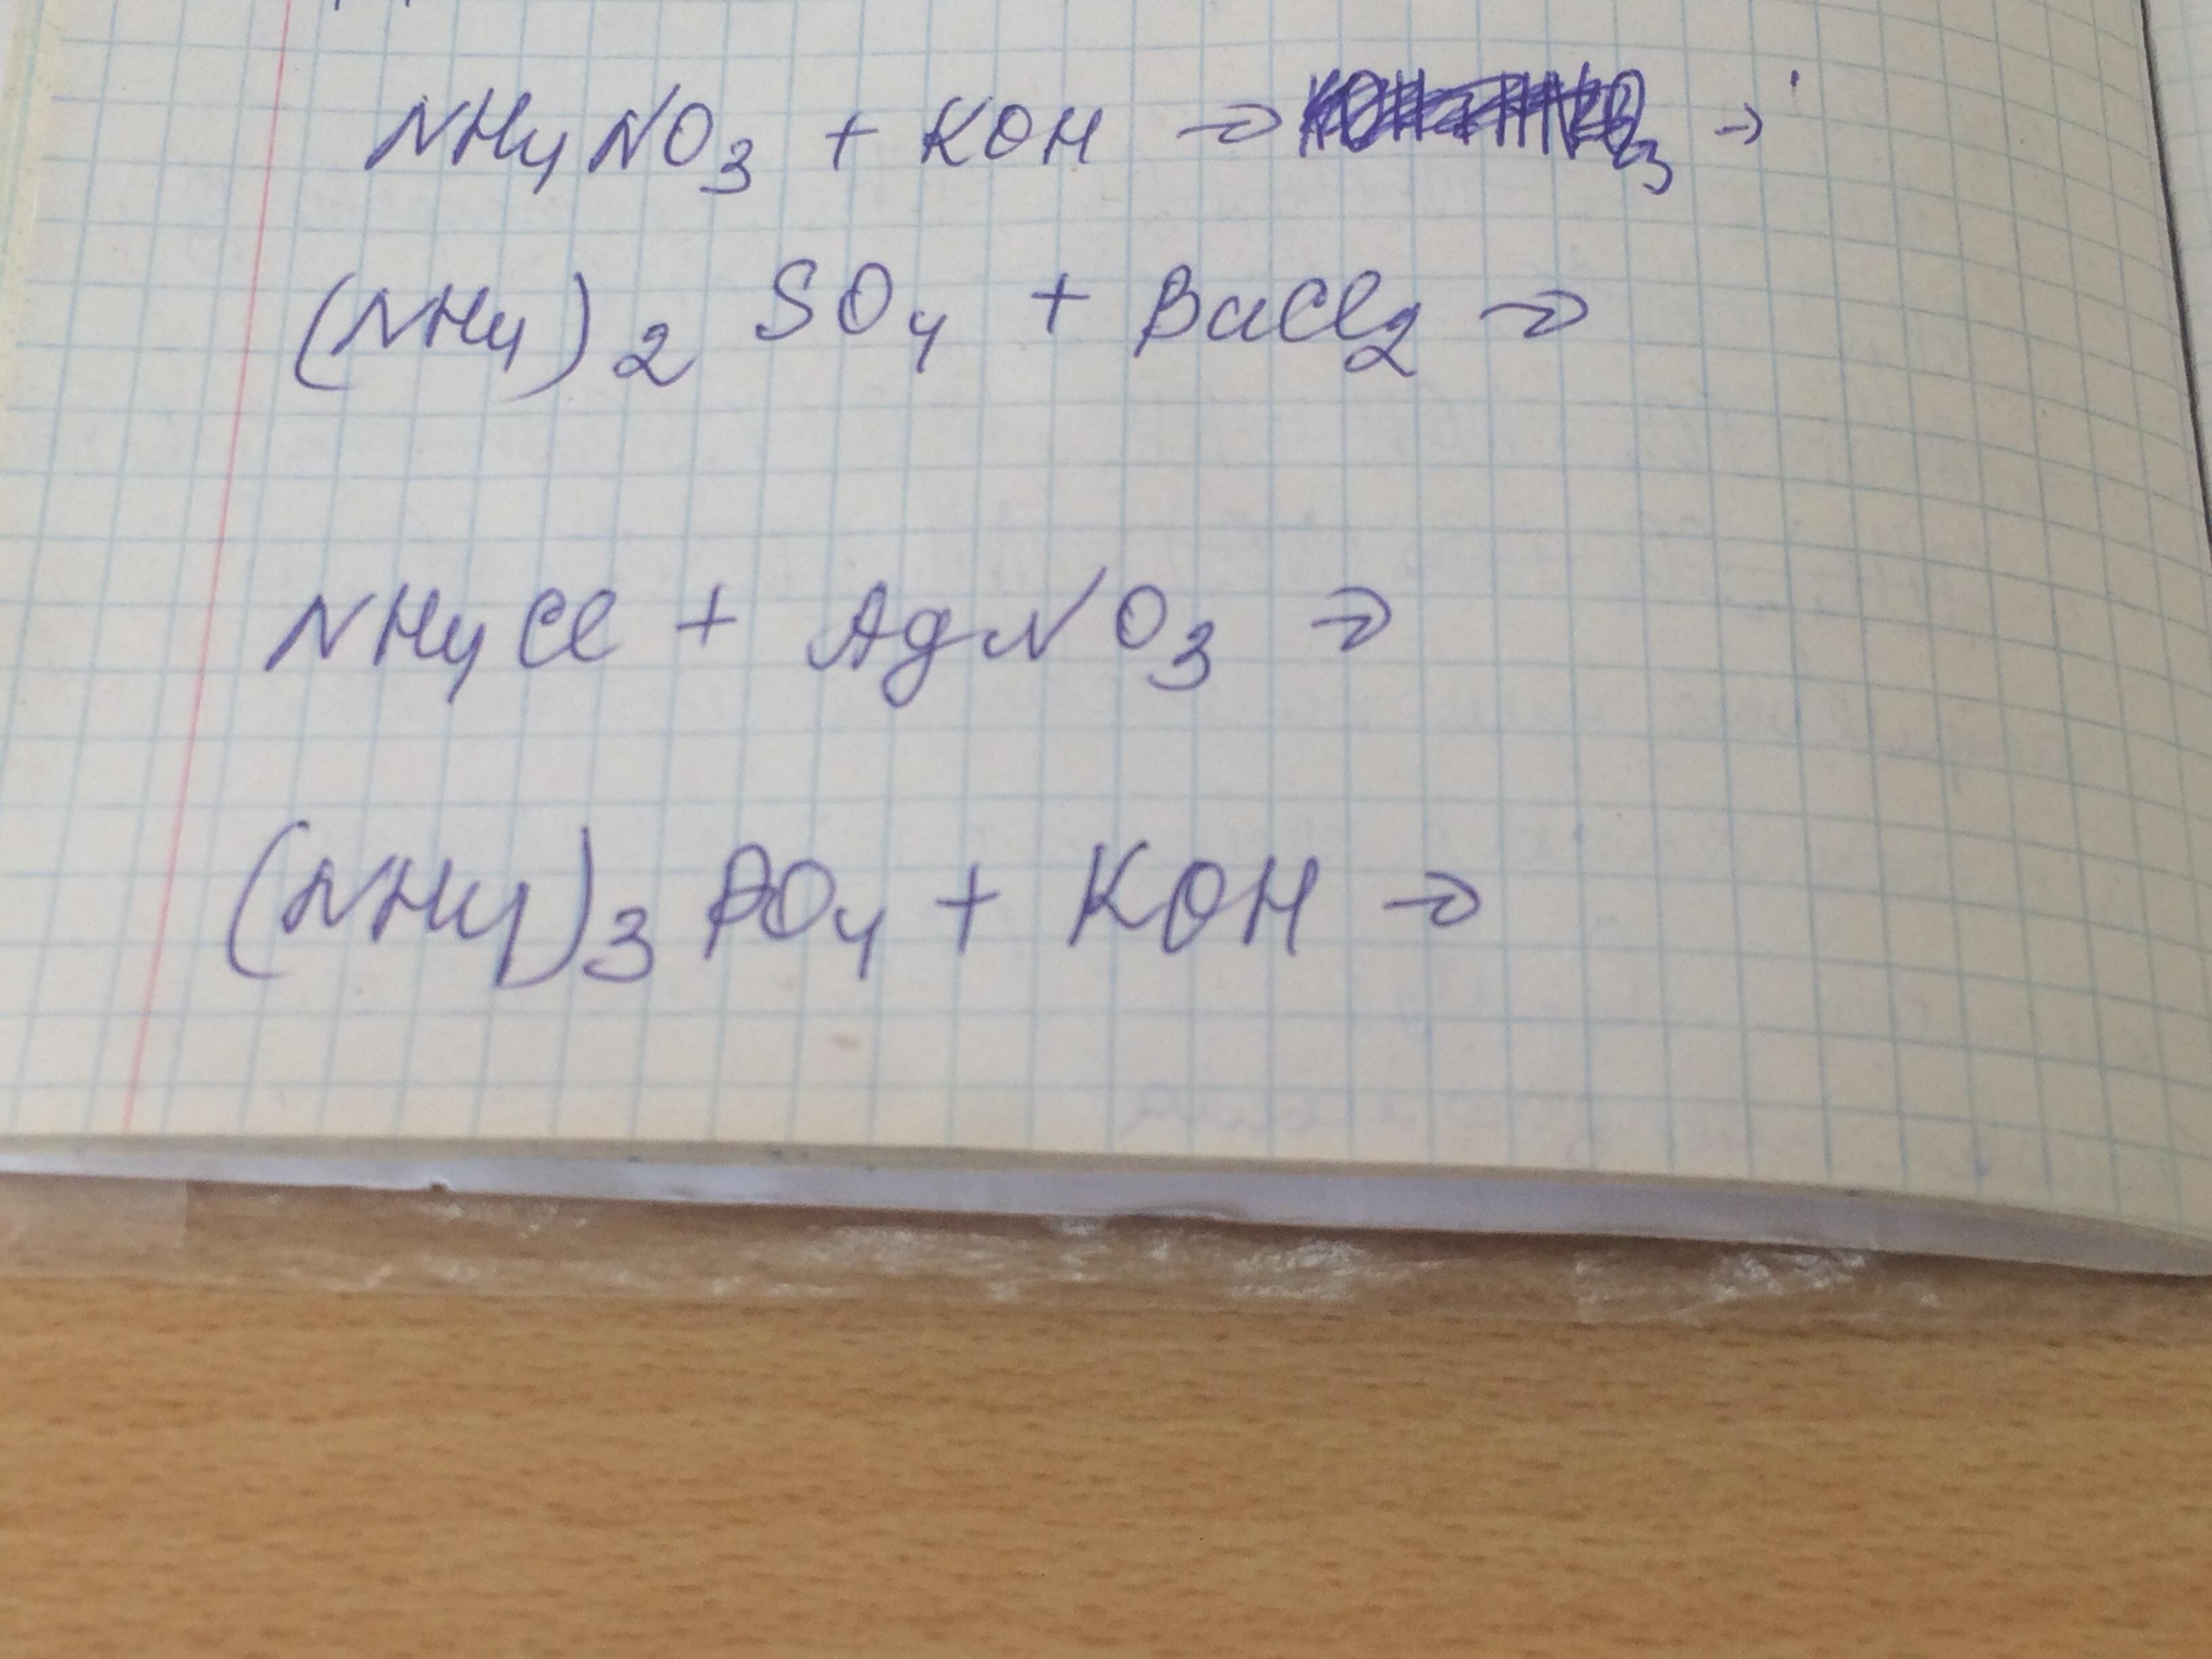 NH4NO3 + KOH → →
(NH4)2 SO4 + BaCl2 →
NH4Cl + AgNO3 →
(NH4)3 PO4 + KOH →